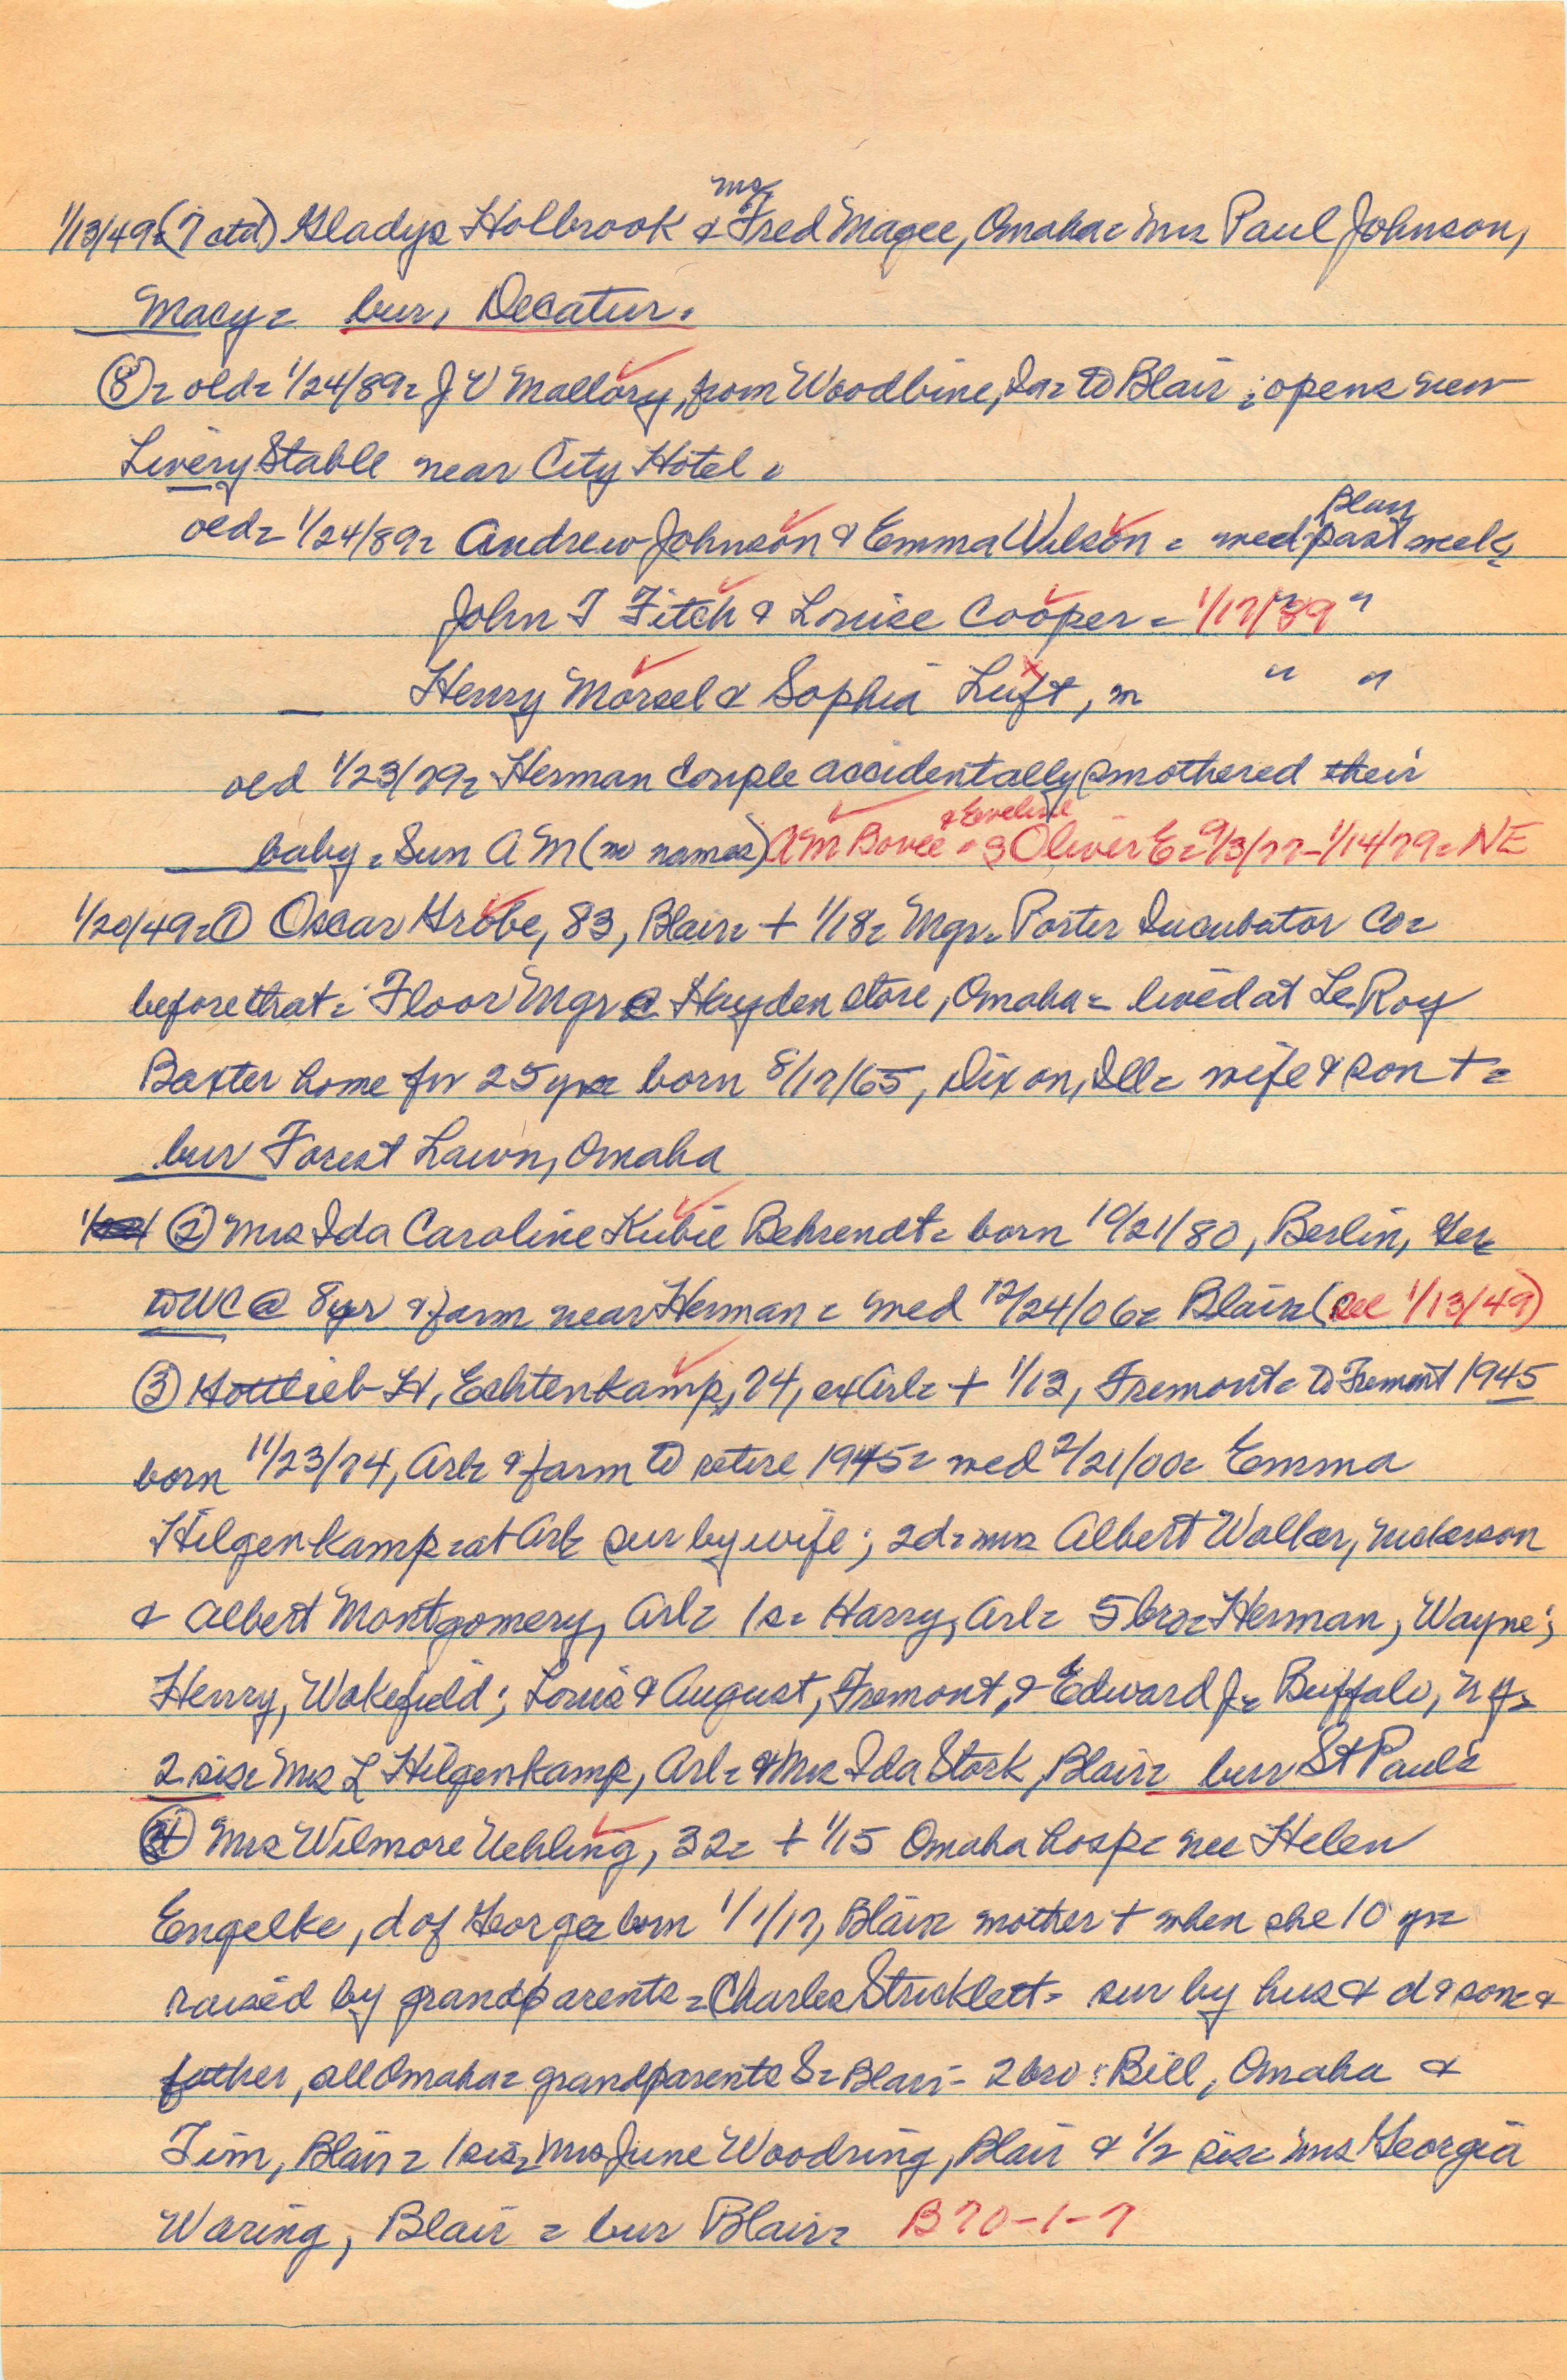 1/13/49= (7 ctd) Gladys Holbrook & Mrs Fred Magee, Omaha= Mrs Paul Johnson,
Macy= bur, Decatur.
⑧= old= 1/24/89= J V Mallory, from Woodbine, Ia= to Blair; opens new
Livery Stable near City Hotel=
old= 1/24/89= Andrew Johnson & Emma Wilson = med Blair past week=
John T Fitch & Louise Cooper = 1/17/89 " "
Henry Morsel & Sophia Luft, m " "
old 1/23/79= Herman Couple accidentally smothered their
baby = Sun AM (no names) AM Bovee & Eveline = s Oliver E= 9/3/77-1/14/79= NE
1/20/49= ① Oscar Grobe, 83, Blair= + 1/18= Mgr= Porter Incubator Co=
before that= Floor Mgr @ Hayden store, Omaha= lived at LeRoy
Baxter home for 25 yrs= born 8/17/65, Dixon, Ill= wife & son + =
bur Forest Lawn, Omaha
② Mrs Ida Caroline Kubie Behrendt= born 10/21/80, Berlin, Ger=
to WC @ 8 yr & farm near Herman = med 12/24/06= Blair= (see 1/13/49)
③ Gottlieb H, Echtenkamp, 74, ex Arl= + 1/13, Fremont= to Fremont 1945
born 11/23/74, Arl= & farm to retire 1945= med 2/21/00= Emma
Hilgenkamp= at Arl= sur by wife; 2d= mrs Albert Walker, Nickerson
& Albert Montgomery, Arl= 1s= Harry, Arl= 5 bro= Herman, Wayne;
Henry, Wakefield; Louis & August, Fremont, & Edward J= Buffalo, NY=
2 sis= Mrs L Hilgenkamp, Arl= & Mrs Ida Stork, Blair= bur St Pauls
④ Mrs Wilmore Uehling, 32= + 1/15 Omaha hosp= nee Helen
Engelke, d of George= born 1/1/17, Blair= mother + when she 10 yrs=
raised by grandparents = Charles Stricklett= sur by hus & d & son= &
father, all Omaha= grandparents S= Blair- 2 bro: Bill, Omaha &
Tim, Blair= 1 sis= Mrs June Woodring, Blair & 1/2 sis= Mrs Georgia
Waring, Blair = bur Blair= B70-1-7